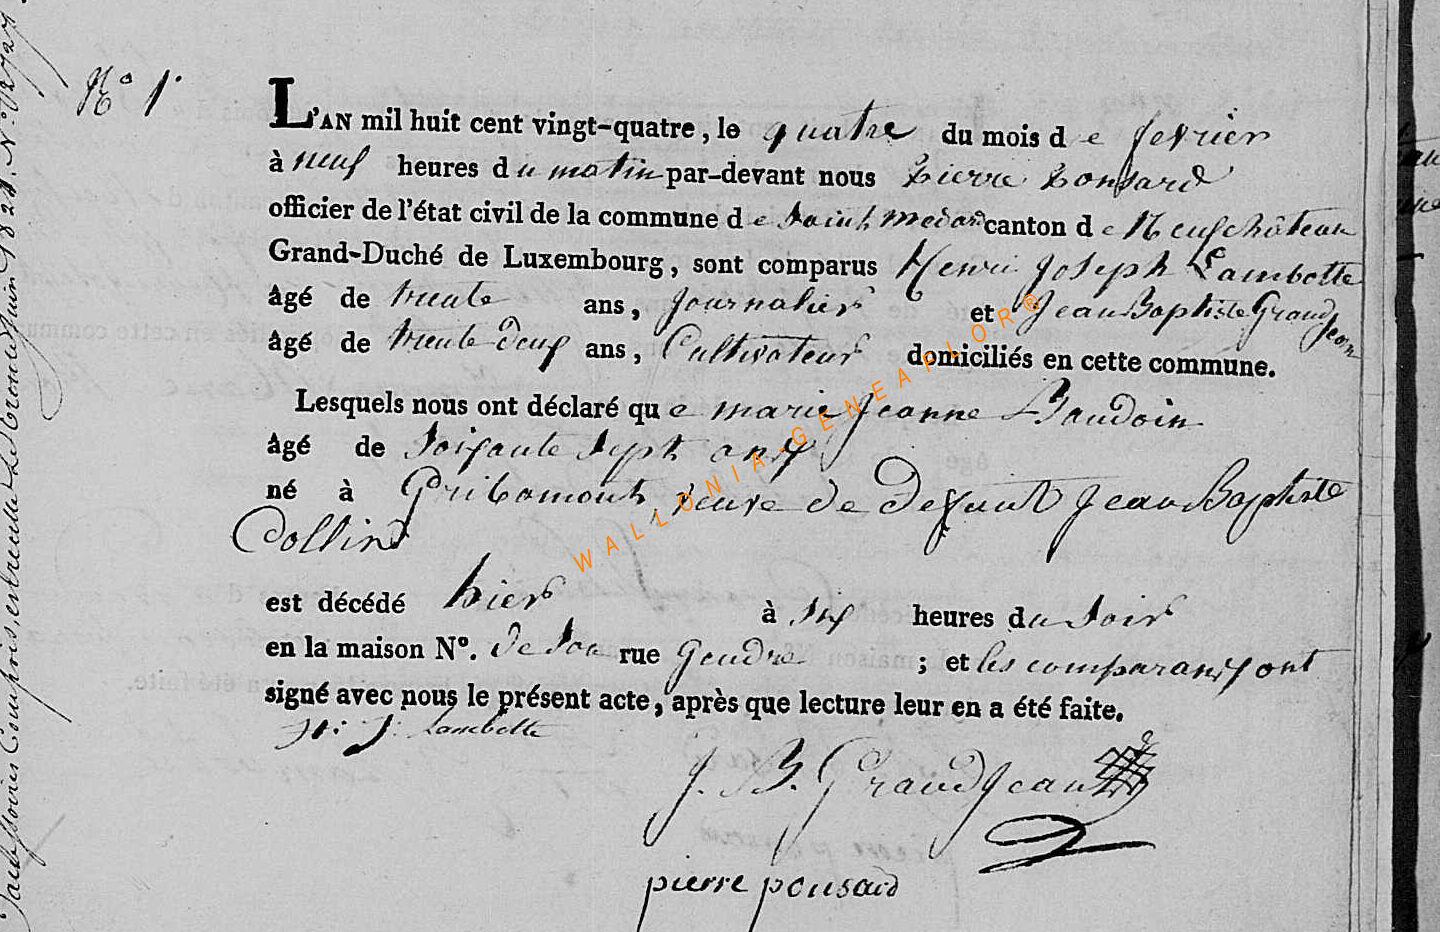 No 1.
L'AN mil huit cent vingt-quatre, le quatre du mois de fevrier
à neuf heures du matin par-devant nous Pierre Ponsard
officier de l'état civil de la commune de Saint medard canton de Neufchâteau
Grand-Duché de Luxembourg, sont comparus Henri Joseph Lambotte
âgé de trente ans, Journalier et Jean Baptiste Grandjean
âgé de trente deux ans, Cultivateur domiciliés en cette commune.
Lesquels nous ont déclaré que marie Jeanne Baudoin
âgé de Soixante Sept ans
né à Gribomont, veuve de Defunt Jean Baptiste
Collin
est décédé hier à Six heures du Soir
en la maison No. de Son rue Gendre ; et les comparans ont
signé avec nous le présent acte, après que lecture leur en a été faite.
H: J: Lambotte
J. B. Grandjean
pierre ponsard
WALLONIA-GENEAFLOR®